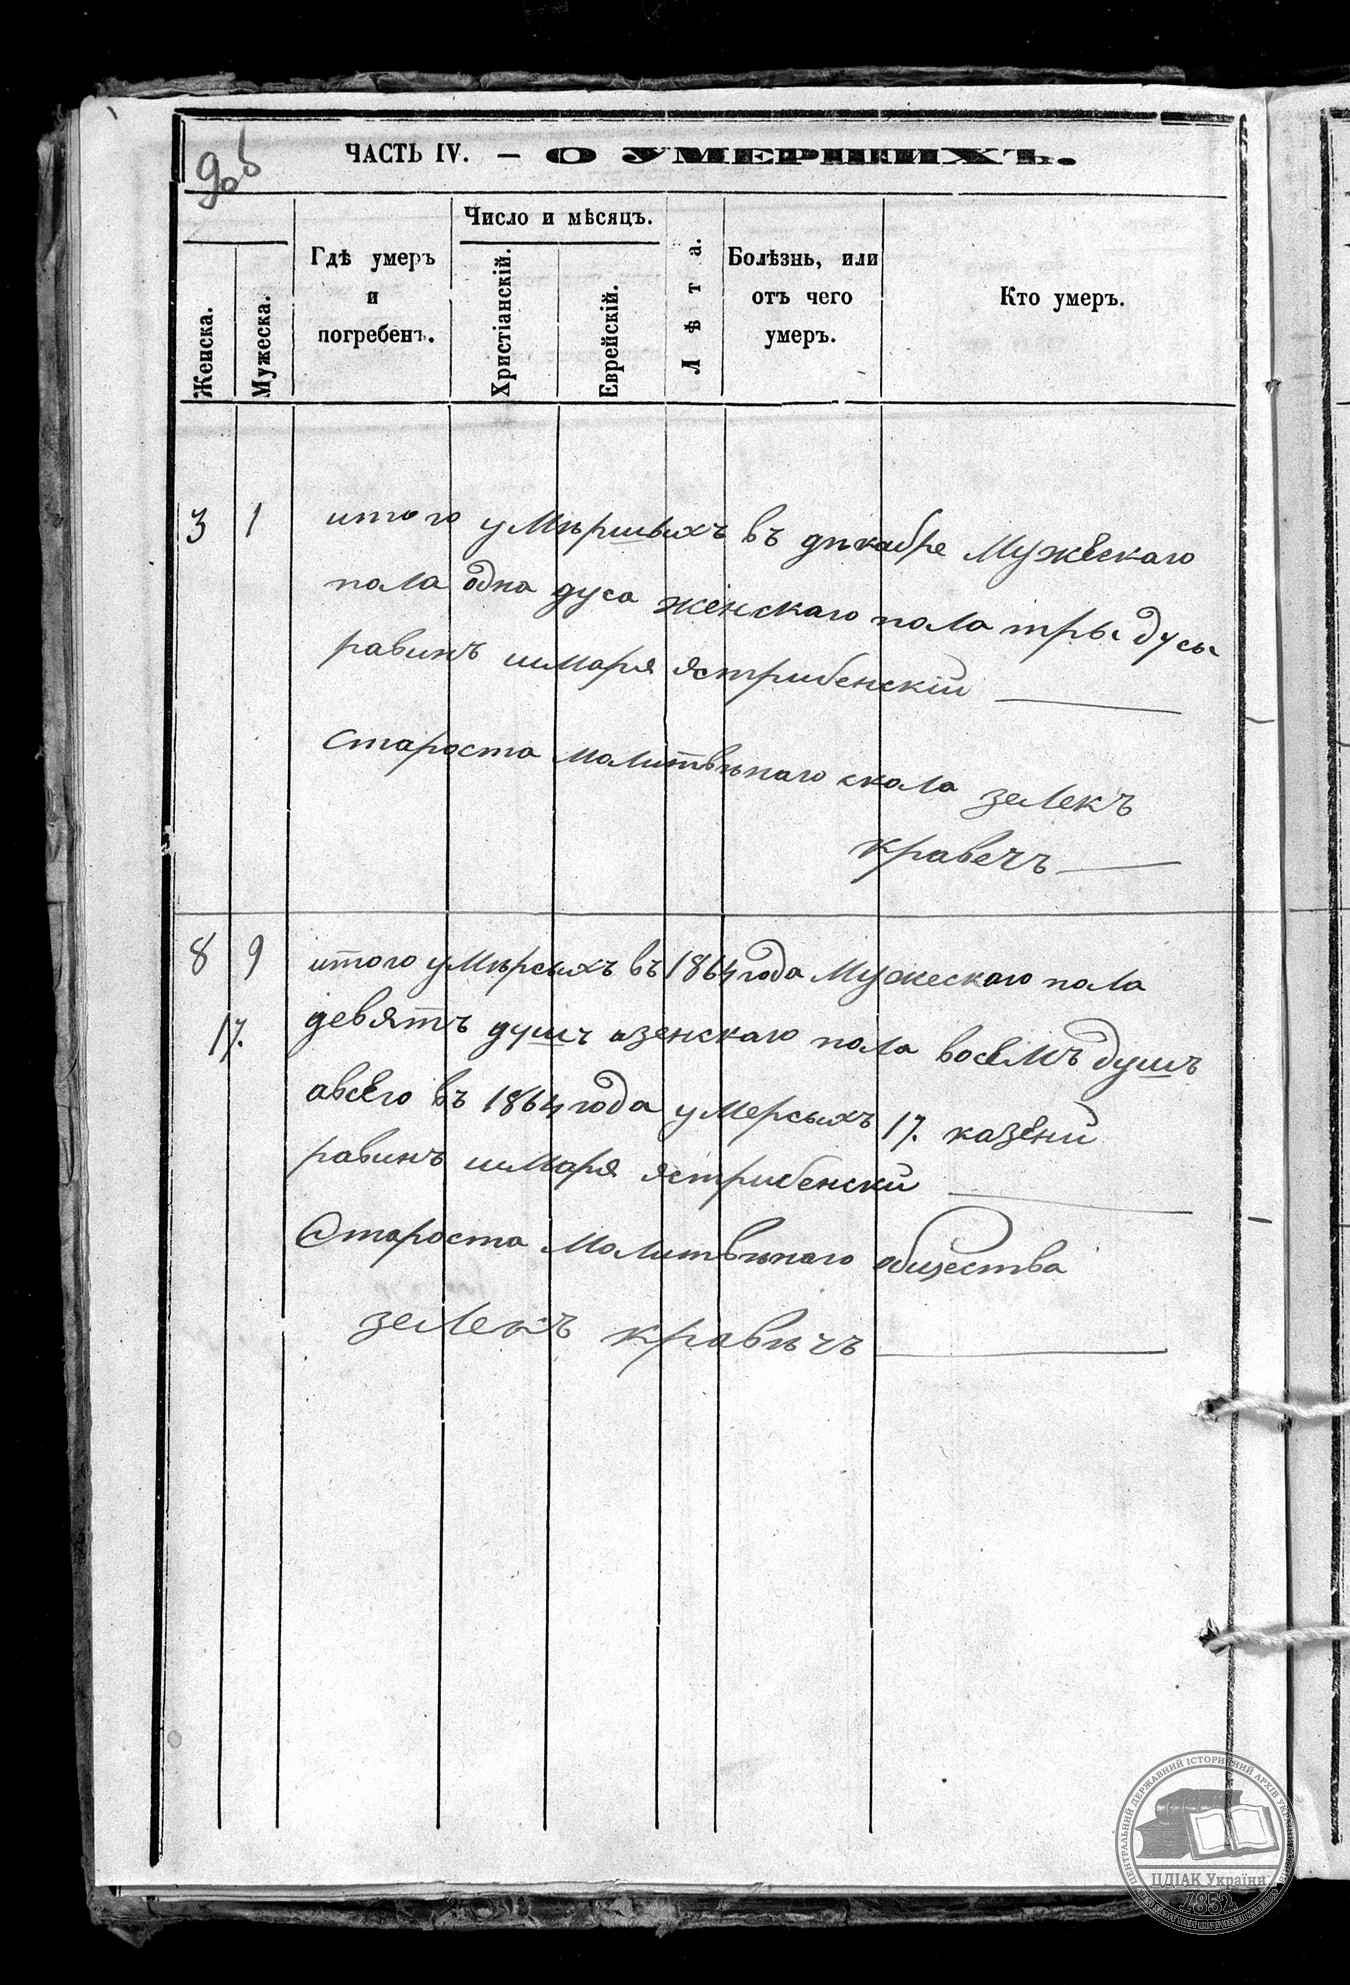 90б
ЧАСТЬ IV. — О УМЕРШИХЪ.
Женска.
Мужеска.
Гдѣ умеръ
и
погребенъ.
Число и мѣсяцъ.
Христіанскій.
Еврейскій.
Лѣта.
Болѣзнь, или
отъ чего
умеръ.
Кто умеръ.
3 1 итого умѣршыхъ въ дѣкабре Мужескаго
пола одна дуса женскаго пола тры дусы
равинъ шмаря ястрибенскій
Староста Молитвѣнаго скола зелекъ
кравечъ
8 9 итого умѣрсыхъ въ 1864 года Мужескаго пола
17. девятъ душъ зенскаго пола восемъ душъ
авсего въ 1864 года умерсыхъ 17. казени
равинъ шмаря ястрибенски
Староста Молитвѣнаго общества
зелекъ кравѣчъ
ЦЕНТРАЛЬНИЙ ДЕРЖАВНИЙ ІСТОРИЧНИЙ АРХІВ УКРАЇНИ
ЦДІАК України
1852